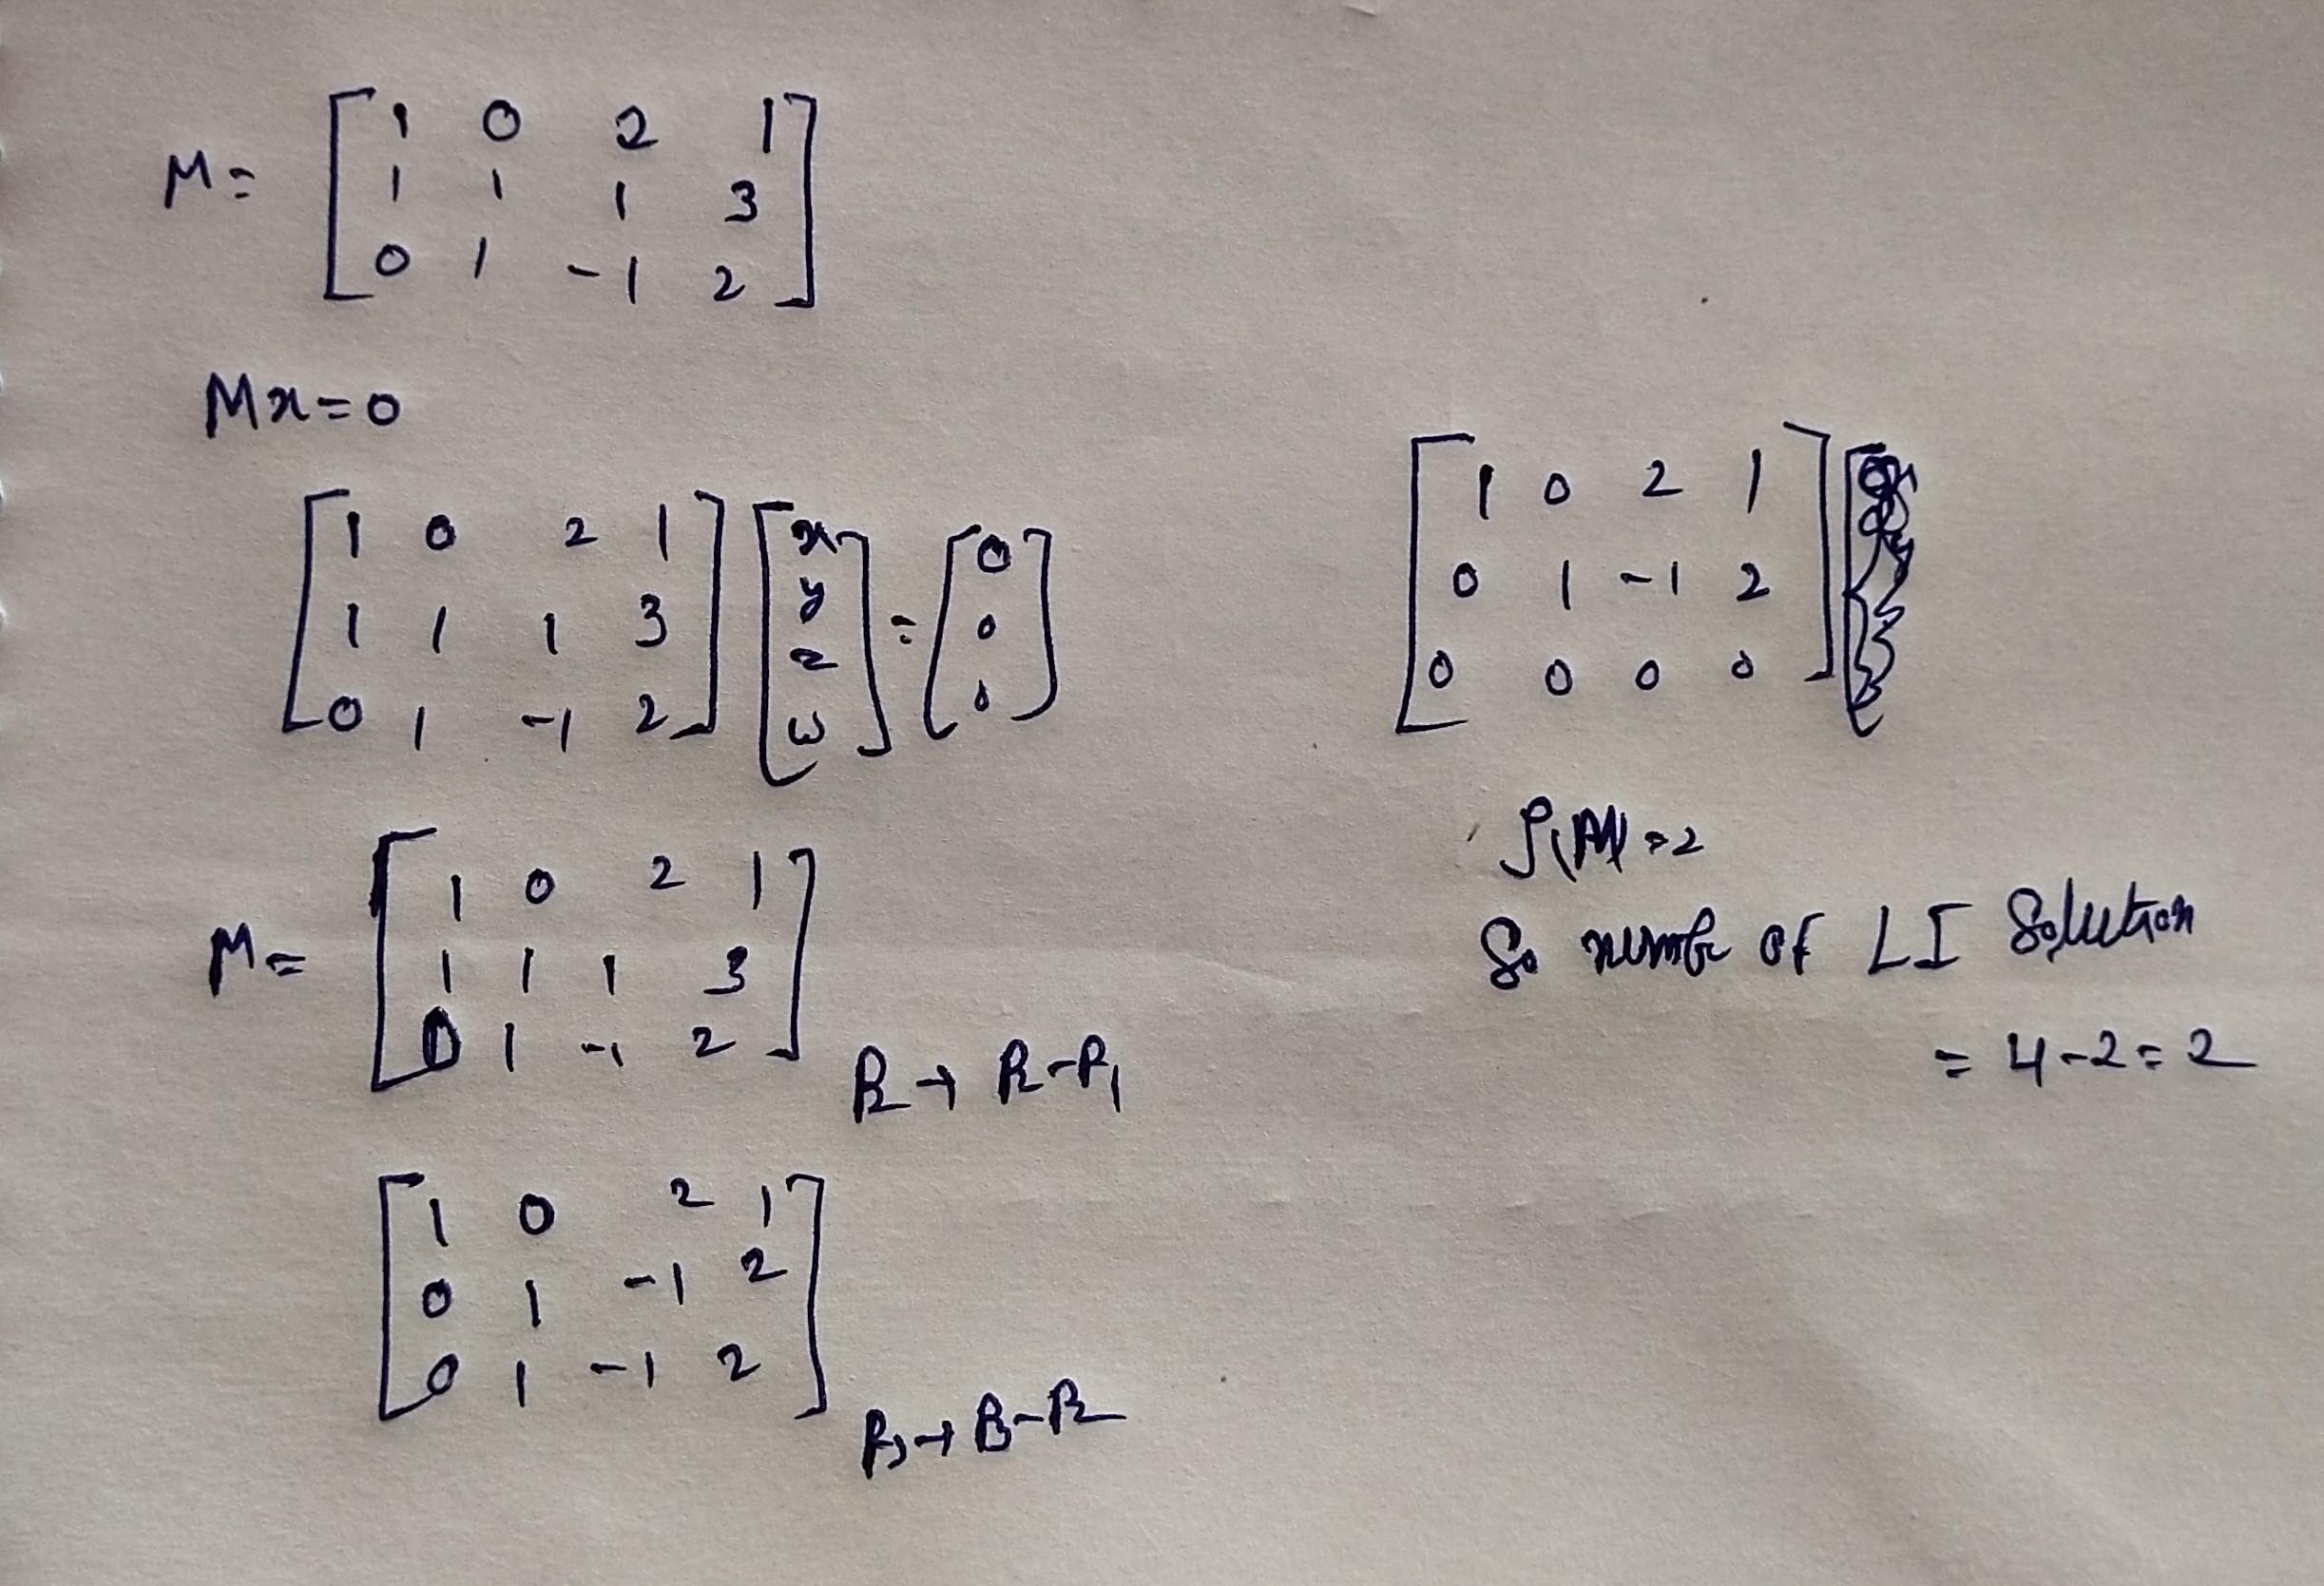 M = [ 1 0 2 1
1 1 1 3
0 1 -1 2 ]
Mx=0
[ 1 0 2 1
1 1 1 3
0 1 -1 2 ] [ x
y
z
w ] = [ 0
0
0 ]
M = [ 1 0 2 1
1 1 1 3
0 1 -1 2 ]
R2 → R2-R1
[ 1 0 2 1
0 1 -1 2
0 1 -1 2 ]
R3 → R3-R2
[ 1 0 2 1
0 1 -1 2
0 0 0 0 ]
ρ(M) = 2
So numbr of LI Solution
= 4-2=2